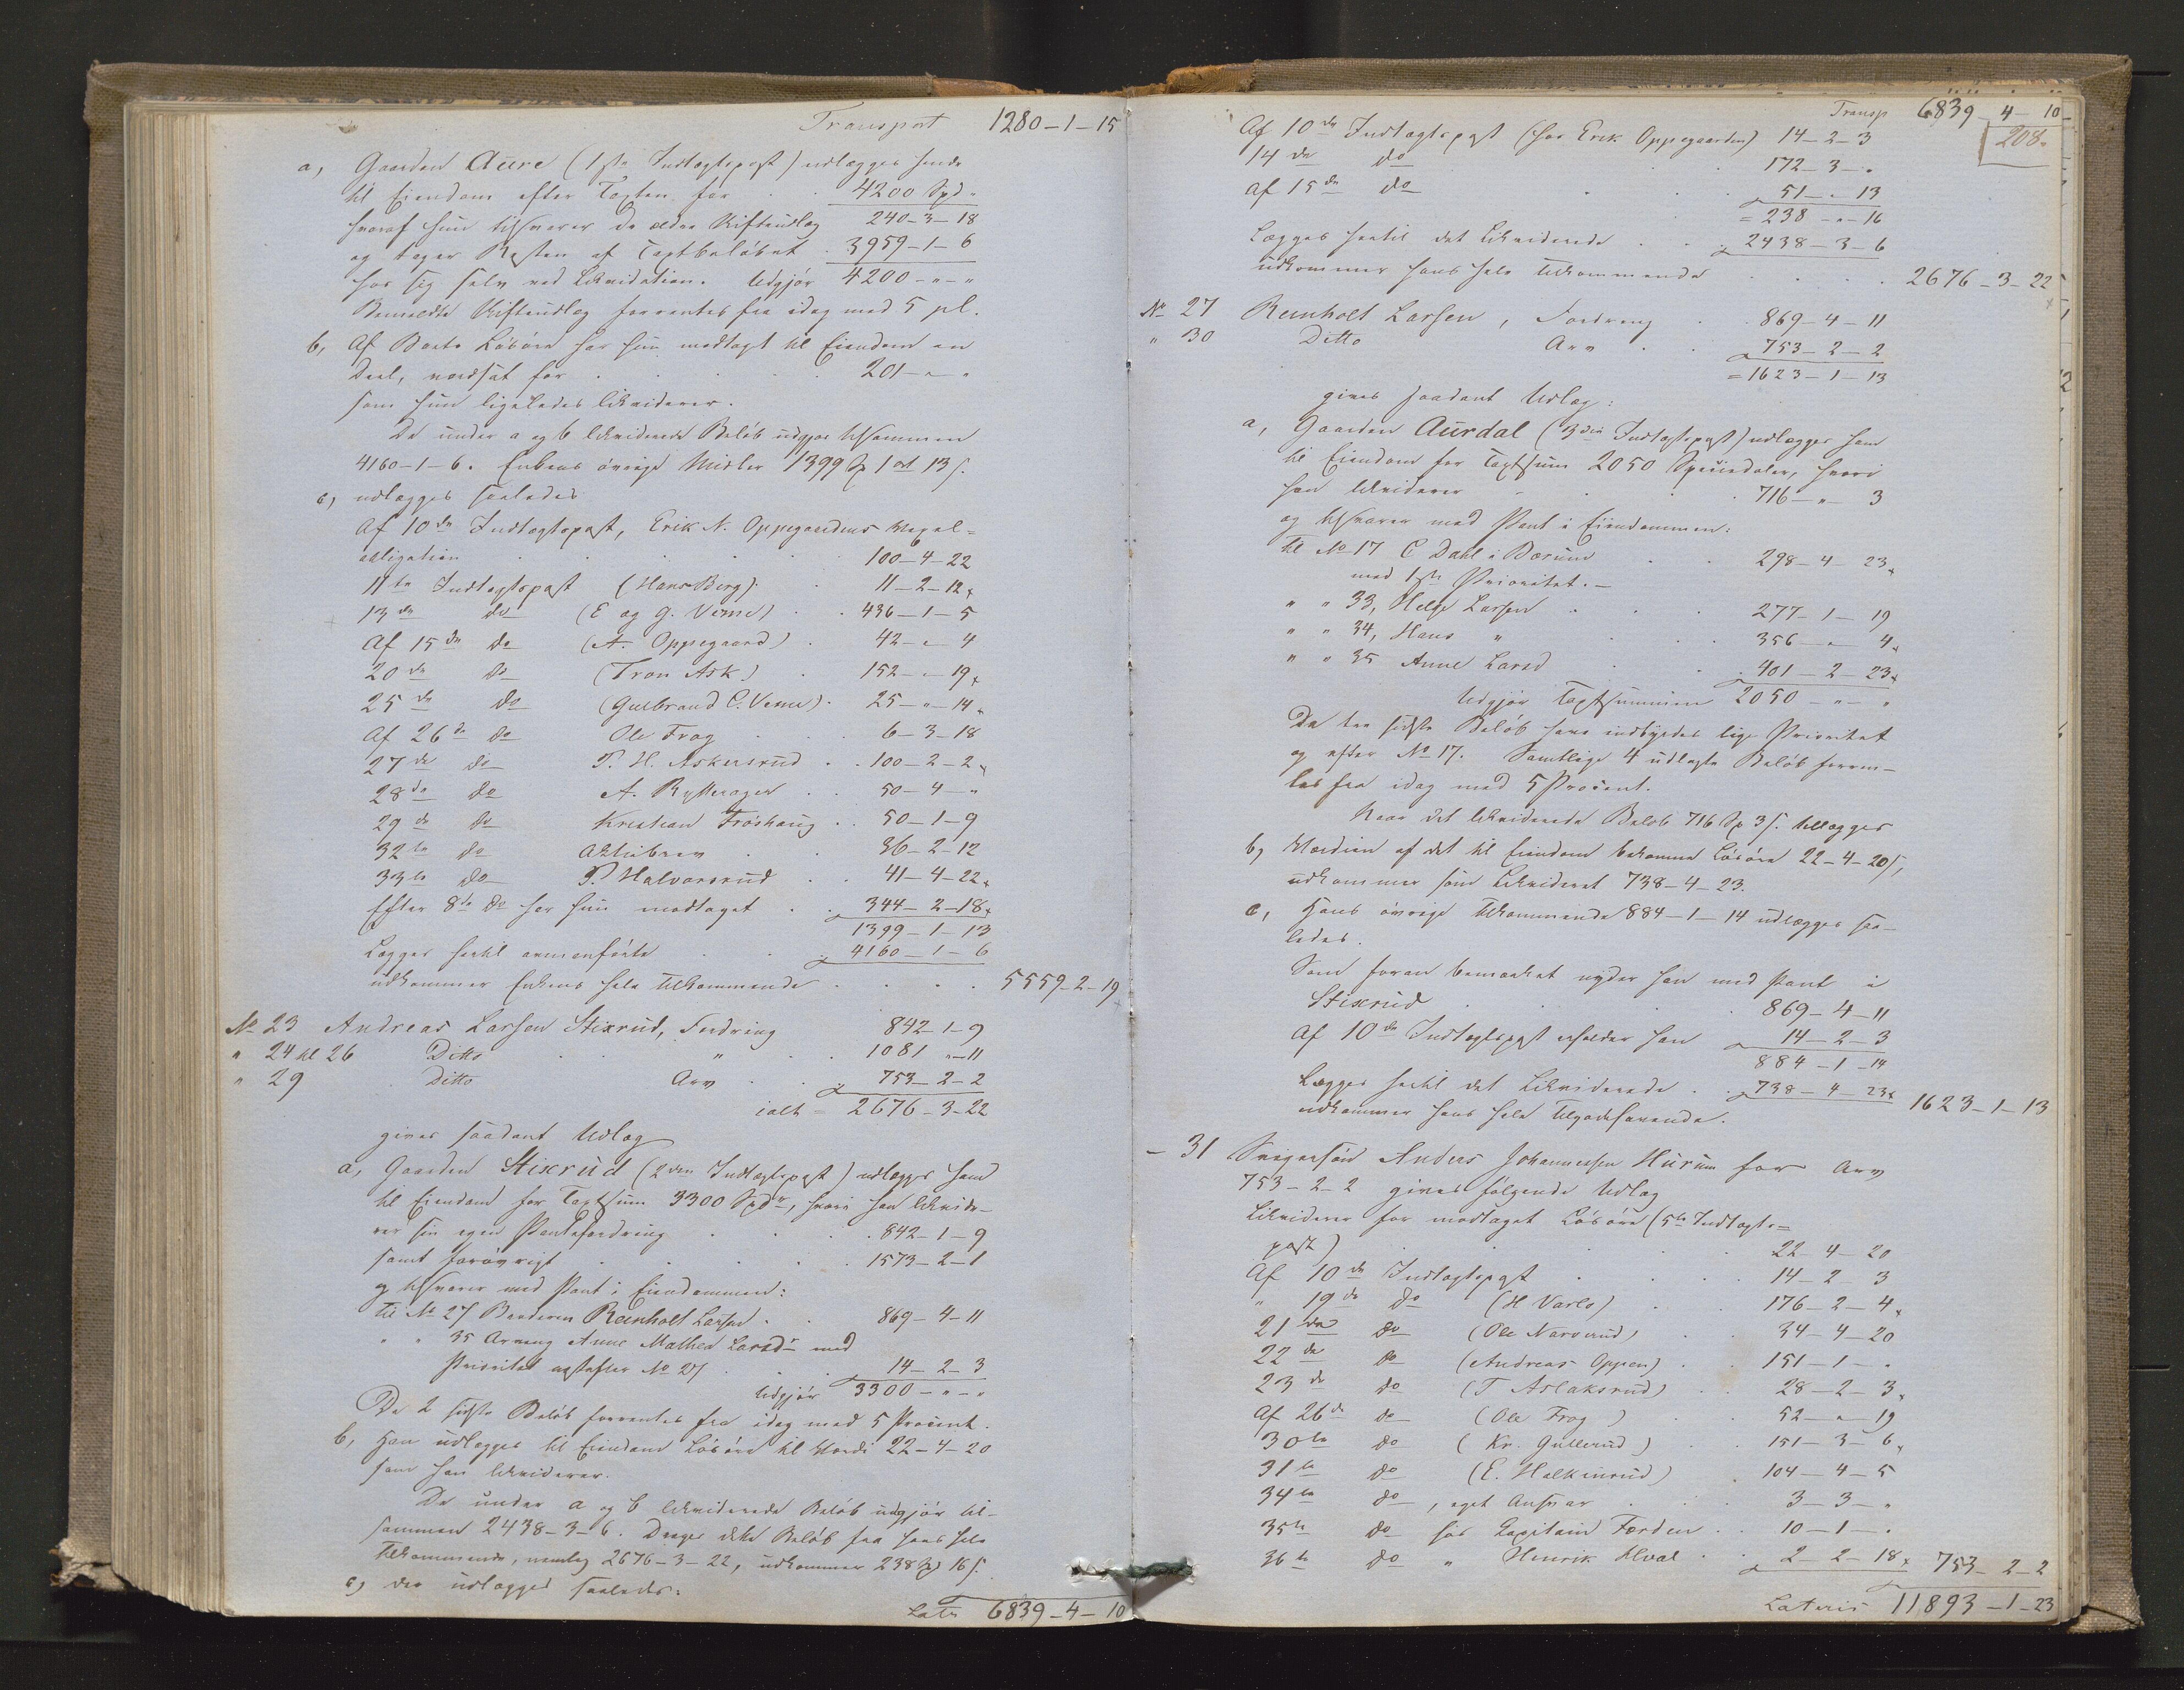 Transport 1280-1-15
a, Gaarden Aure (1ste Indtægtspost) udlægges hende
til Eiendom efter Taxten for . . 4200 Spd.
hvoraf hun tilsvarer de ældre Skifteudlæg 240-3-18
og tager Resten af Taxtbeløbet . 3959-1-6
hos sig selv ved Likvidation. Udgjør 4200-"-"
Bemeldte Skifteudlæg forrentes fra idag med 5 pCt.
b, Af Boets Løsøre har hun modtaget til Eiendom en
Deel, værdsat for . . . . 201-"-"
som hun ligeledes likviderer.
De under a og b likviderede Beløb udgjør tilsammen
4160-1-6. Enkens øvrige Midler 1399 Sp 1 ort 13 s.
c, udlægges saaledes
Af 10de Indtægtspost, Erik N. Oppegaardens Vexel=
obligation . . . . 100-4-22
11te Indtægtspost (Hans Berg) . 11-2-12
13de do (E og G. Verne) . . 436-1-5
Af 15de do (A. Oppegaard) . 42-"-4
20de do (Tron Ask) . 152-"-19
25de do (Gulbrand C. Verne) . 25-"-14
Af 26de do Ole Frog . . 6-3-18
27de do P. H. Askersrud . . 100-2-2
28de do A. Rytterager . . 50-4-"
29de do Kristian Frøshaug . . 50-1-9
32te do Aktiebrev . . 36-2-12
33te do P. Halvorsrud . . 41-4-22
Efter 8de do har hun modtaget . . 344-2-18
1399-1-13
Lægges hertil ovenanførte . . 4160-1-6
udkommer Enkens hele Tilkommende . . . . 5559-2-19
No 23 Andreas Larsen Stixrud, Fordring 842-1-9
" 24 til 26 Ditto . . " . . 1081 "-11
" 29 Ditto Arv . . 753-2-2
ialt = 2676-3-22
gives saadant Udlæg
a, Gaarden Stixrud (2den Indtægtspost) udlægges ham
til Eiendom for Taxtsum 3300 Spdr, hvori han likvide-
rer sin egen Pantefordring . . . 842-1-9
samt forøvrigt . . . . 1573-2-1
og tilsvarer med Pant i Eiendommen:
til No 27 Broderen Reinholt Larsen . . 869-4-11
" " 35 Arving Anne Mathea Larsdr med
Prioritet næstefter No 27 . . 14-2-3
Udgjør 3300-"-"
De 2 sidste Beløb forrentes fra idag med 5 Procent.
b, Ham udlægges til Eiendom Løsøre til Værdi 22-4-20
som han likviderer.
De under a og b likviderede Beløb udgjør til-
sammen 2438-3-6. Drages dette Beløb fra hans hele
Tilkommende, nemlig 2676-3-22, udkommer 238 Spd 16 s.
c, der udlægges saaledes:
Lats 6839-4-10
Transp 6839-4-10
208.
Af 10de Indtægtspost (hos Erik Oppegaarden) 14-2-3
14de do . . . . 172-3-"
Af 15de do . . . 51-"-13
= 238-"-16
Lægges hertil det Likviderede . . 2438-3-6
udkommer hans hele Tilkommende . . . . 2676-3-22
No 27 Reinholt Larsen, Fordring . . 869-4-11
" 30 Ditto Arv . . 753-2-2
= 1623-1-13
gives saadant Udlæg:
a, Gaarden Aurdal (3die Indtægtspost) udlægges ham
til Eiendom for Taxtsum 2050 Speciedaler, hvori
han likviderer . . . 716-"-3
og tilsvarer med Pant i Eiendommen:
til No 17 C Dahl i Bærum . . 298-4-23
med 1ste Prioritet.-
" " 33, Helge Larsen . . . 277-1-19
" " 34, Hans " . . . 356-"-4
" " 35 Anne Larsd . . 401-2-23
Udgjør Taxtsummen 2050-"-"
De tre sidste Beløb have indbyrdes lige Prioritet
og efter No 17. Samtlige 4 udlagte Beløb forren-
tes fra idag med 5 Procent.
Naar det likviderede Beløb 716 Sp 3 s. tillægges
b, Værdien af det til Eiendom bekomne Løsøre 22-4-20 s,
udkommer som Likvideret 738-4-23.
c, Hans øvrige Tilkommende 884-1-14 udlægges saa-
ledes.
Som foran bemærket nyder han med Pant i
Stixrud . . . . 869-4-11
Af 10de Indtægtspost erholder han 14-2-3
884-1-14
Lægges hertil det Likviderede . . 738-4-23
udkommer hans hele Tilgodehavende. 1623-1-13
- 31 Svigersøn Anders Johannesen Hurum for Arv
753-2-2 gives følgende Udlæg
Likviderer for modtaget Løsøre (5te Indtægts=
post) . . . . 22-4-20
Af 10de Indtægtspost . . . 14-2-3
" 19de do (H Varlo) . . 176-2-4
21de do (Ole Narverud) . . 34-4-20
22de do (Andreas Oppen) . . 151-1-"
23de do (T Aslaksrud) . . 28-2-3
Af 26de do (Ole Frog) . . 52-"-19
30te do (Kr. Gullerud) . . 151-3-6
31te do (E. Halkinrud) . 104-4-5
34te do, eget Ansvar . . . 3-3-"
35te do hos Kapitain Førden . . 10-1-"
36te do " Henrik Alval . . 2-2-18 753-2-2
Lateris 11893-1-23